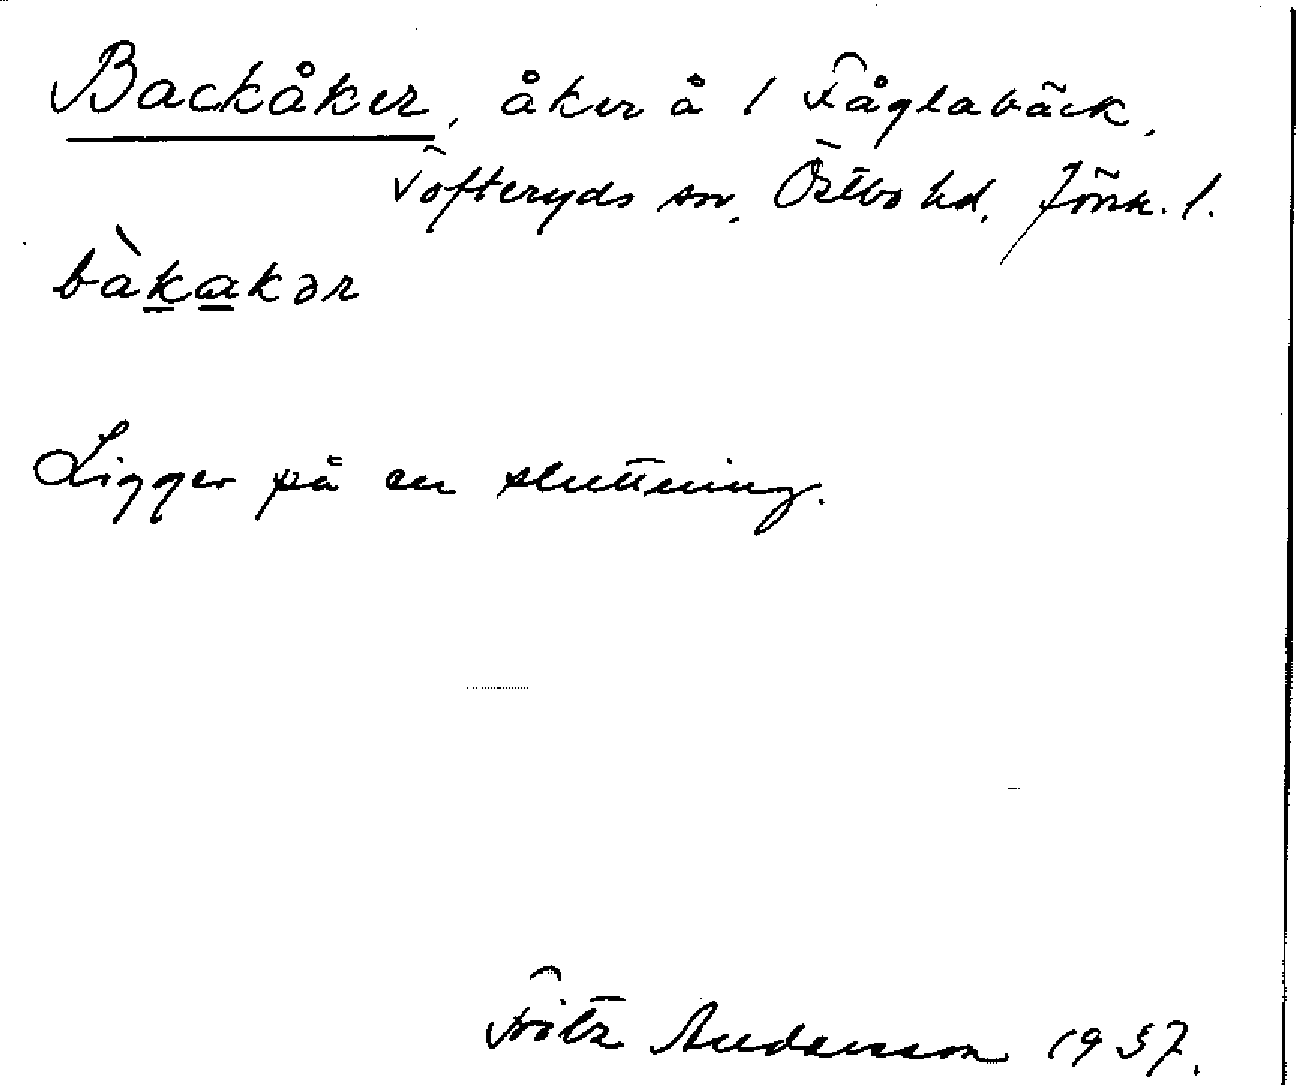 Backåker, åker å 1 Fåglabäck,
Tofteryds sn, Östbo hd, Jönk. l.
bàkakər
Ligger på en sluttning.
Fritz Andersson 1937.